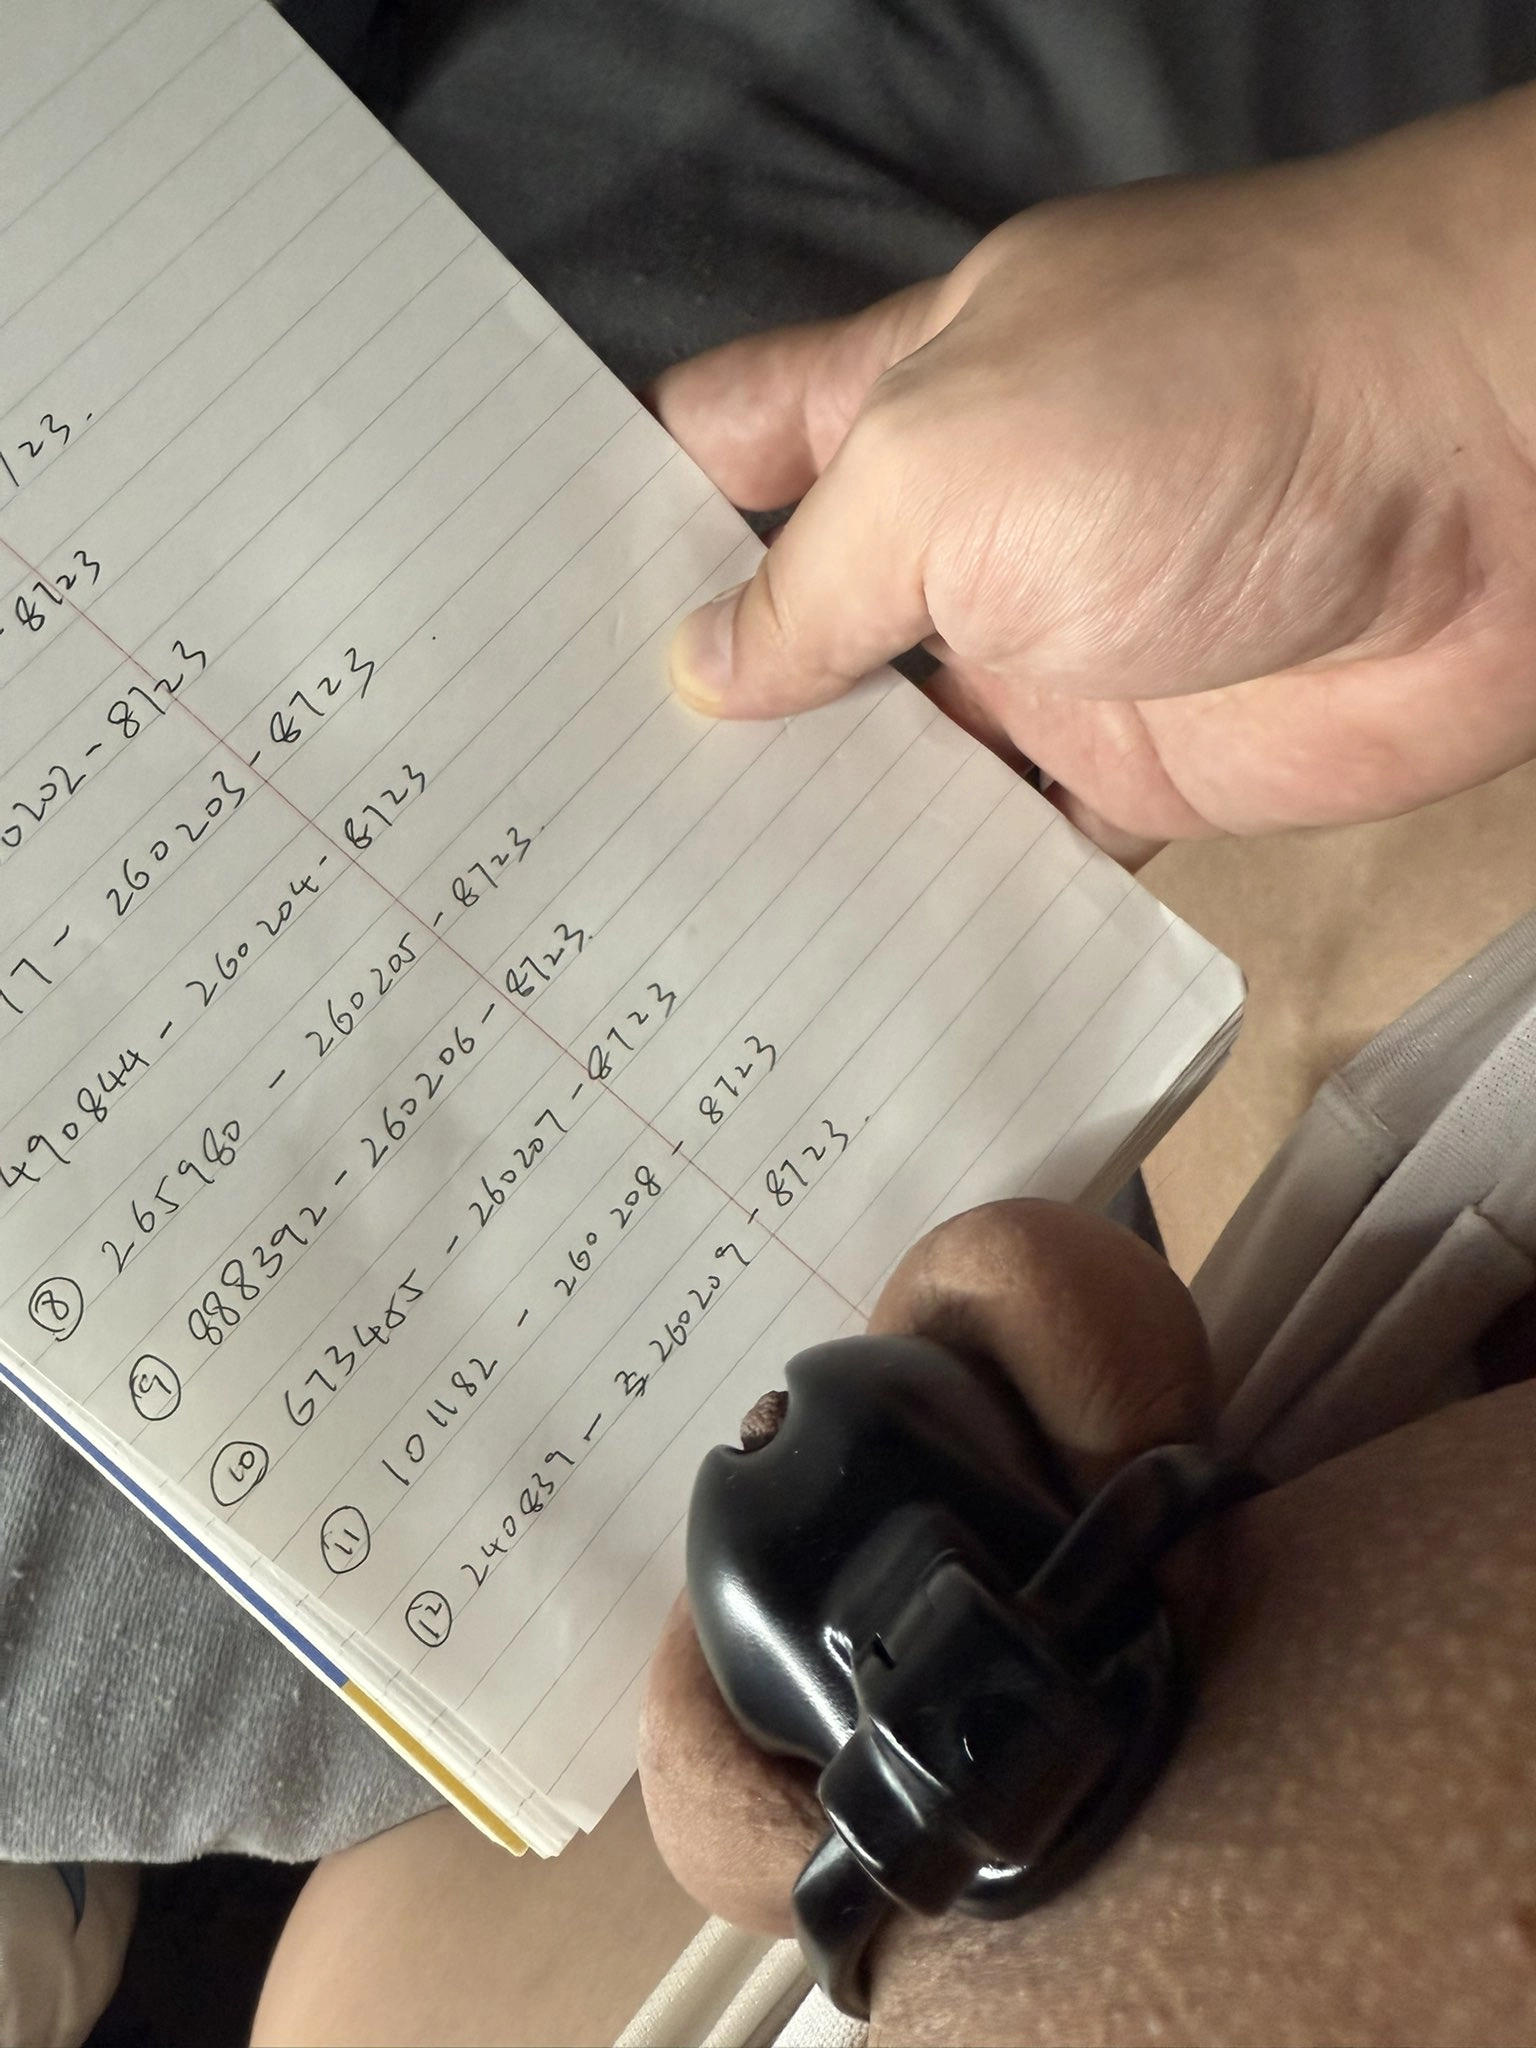 /23.
- 8723
0202 - 8723
77 - 260203 - 8723
490844 - 260204 - 8723
⑧ 265980 - 260205 - 8723.
⑨ 888392 - 260206 - 8723.
⑩ 673485 - 260207 - 8723
⑪ 101182 - 260208 - 8723
⑫ 240839 - 260209 - 8723.